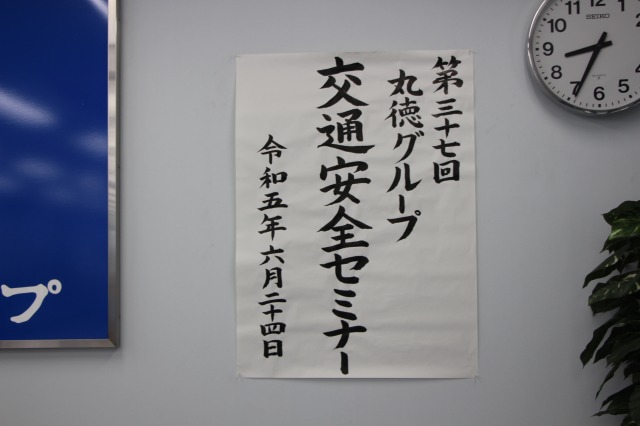 第三十七回
丸徳グループ
交通安全セミナー
令和五年六月二十四日
プ
SEIKO
12
1
2
3
4
5
6
7
8
9
10
11